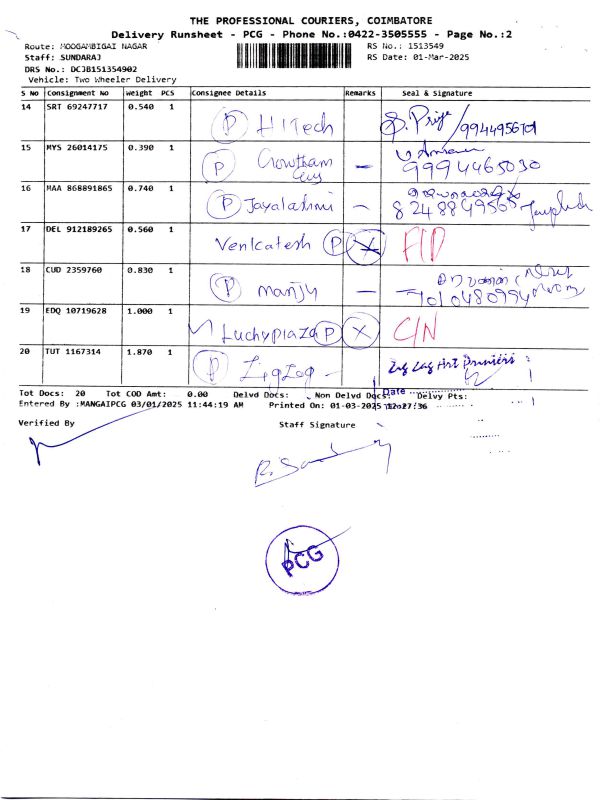 THE PROFESSIONAL COURIERS, COIMBATORE
Delivery Runsheet - PCG - Phone No.:0422-3505555 - Page No.:2
Route: MOOGAMBIGAI NAGAR RS No.: 1513549
Staff: SUNDARAJ RS Date: 01-Mar-2025
DRS No.: DCJB151354902
Vehicle: Two Wheeler Delivery
S No Consignment No Weight PCS Consignee Details Remarks Seal & Signature
14 SRT 69247717 0.540 1 P HITech
15 MYS 26014175 0.390 1 P Gowtham - 9994465030
16 MAA 868891865 0.740 1 P Jayalakshmi - 8248849565
17 DEL 912189265 0.560 1 Venkatesh P X
18 CUD 2359760 0.830 1 P Manju - 7010480994
19 EDQ 10719628 1.000 1 Luckyplaza P X C/N
20 TUT 1167314 1.870 1 P ZigZag - Zig Zag Art Printers
Tot Docs: 20 Tot COD Amt: 0.00 Delvd Docs: Non Delvd Docs: Delvy Pts:
Date
Entered By :MANGAIPCG 03/01/2025 11:44:19 AM Printed On: 01-03-2025 12:27:36
Verified By Staff Signature
PCG